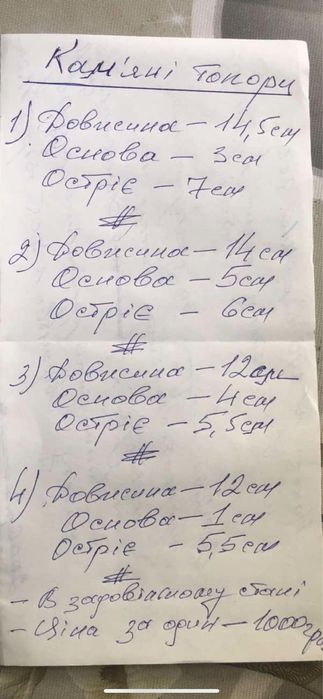 Кам'яні топори
1) Довжина – 14,5см
Основа – 3см
Остріє – 7см
#
2) Довжина – 14см
Основа – 5см
Остріє – 6см
#
3) Довжина – 12см
Основа – 4см
Остріє – 5,5см
#
4) Довжина – 12см
Основа – 1см
Остріє – 5,5см
#
– В задовільному стані
– Ціна за один – 1000грн